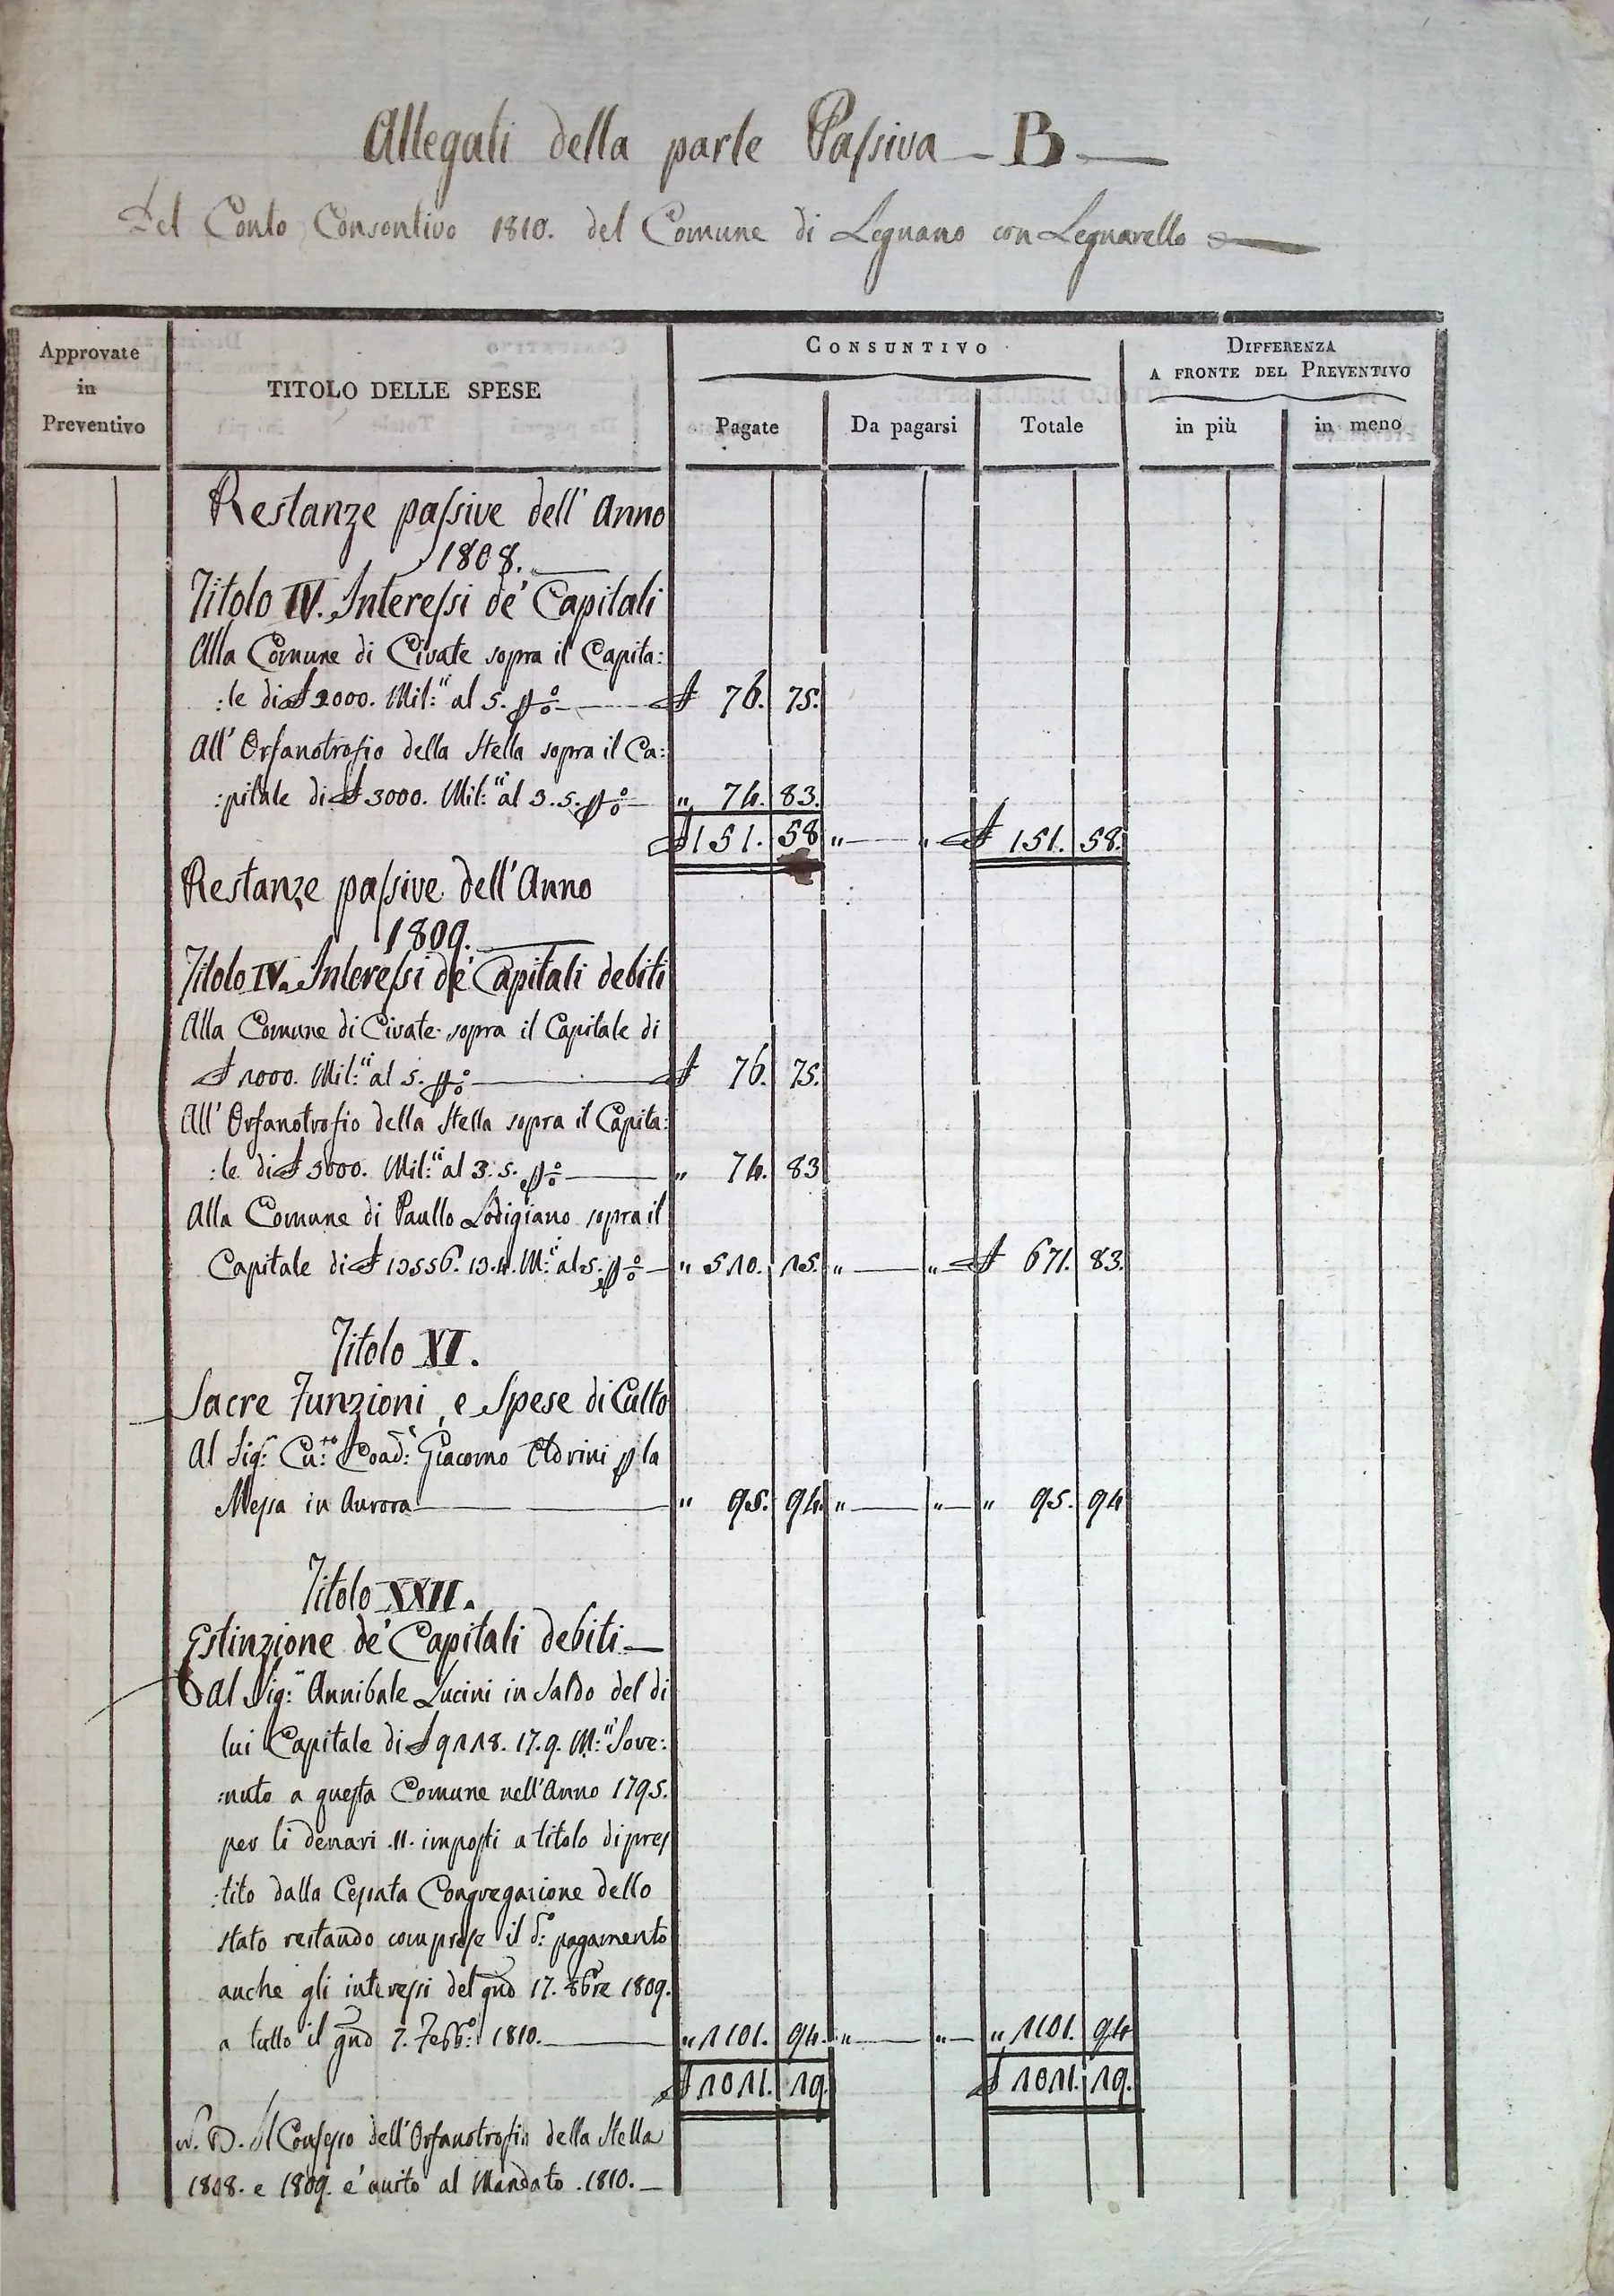 Allegati della parte Passiva - B -
Del Conto Consontivo 1810. del Comune di Legnano con Legnarello
Approvate in Preventivo
TITOLO DELLE SPESE
CONSUNTIVO
DIFFERENZA A FRONTE DEL PREVENTIVO
Pagate
Da pagarsi
Totale
in più
in meno
Restanze passive dell'Anno
1808.
Titolo IV. Interessi de' Capitali
Alla Comune di Civate sopra il Capita:
:le di £ 2000. Mil: al 5. p% £ 76. 75.
All'Orfanotrofio della Stella sopra il Ca:
:pitale di £ 3000. Mil: al 3. 5. p% " 74. 83.
£ 151. 58 " " £ 151. 58.
Restanze passive dell'Anno
1809.
Titolo IV. Interessi de' Capitali debiti
Alla Comune di Civate sopra il Capitale di
£ 2000. Mil: al 5. p% £ 76. 75.
All'Orfanotrofio della Stella sopra il Capita:
:le di £ 3000. Mil: al 3. 5. p% " 74. 83
Alla Comune di Paullo Lodigiano sopra il
Capitale di £ 13556. 13.4. M: al 5. p% " 520. 25. " " £ 671. 83.
Titolo XI.
Sacre Funzioni, e Spese di Culto
Al Sig: Cu: Coad: Giacomo p la
Messa in Aurora " 95. 94. " " " 95. 94
Titolo XXII.
Estinzione de' Capitali debiti
Al Sig: Annibale Lucini in Saldo del di
lui Capitale di £ 9118. 17. 9. M: Sove:
:nuto a questa Comune nell'Anno 1795.
per li denari .11. imposti a titolo di pres
:tito dalla Cessata Congregazione dello
stato restando comprese il d: pagamento
anche gli interessi del gno 17. 8bre 1809.
a tutto il gno 7. Febb: 1810. " 1101. 94. " " " 1101. 94
£ 1011. 19. £ 1011. 19.
N. B. Il Confesso dell'Orfanotrofio della Stella
1808. e 1809. e' unito al Mandato .1810.